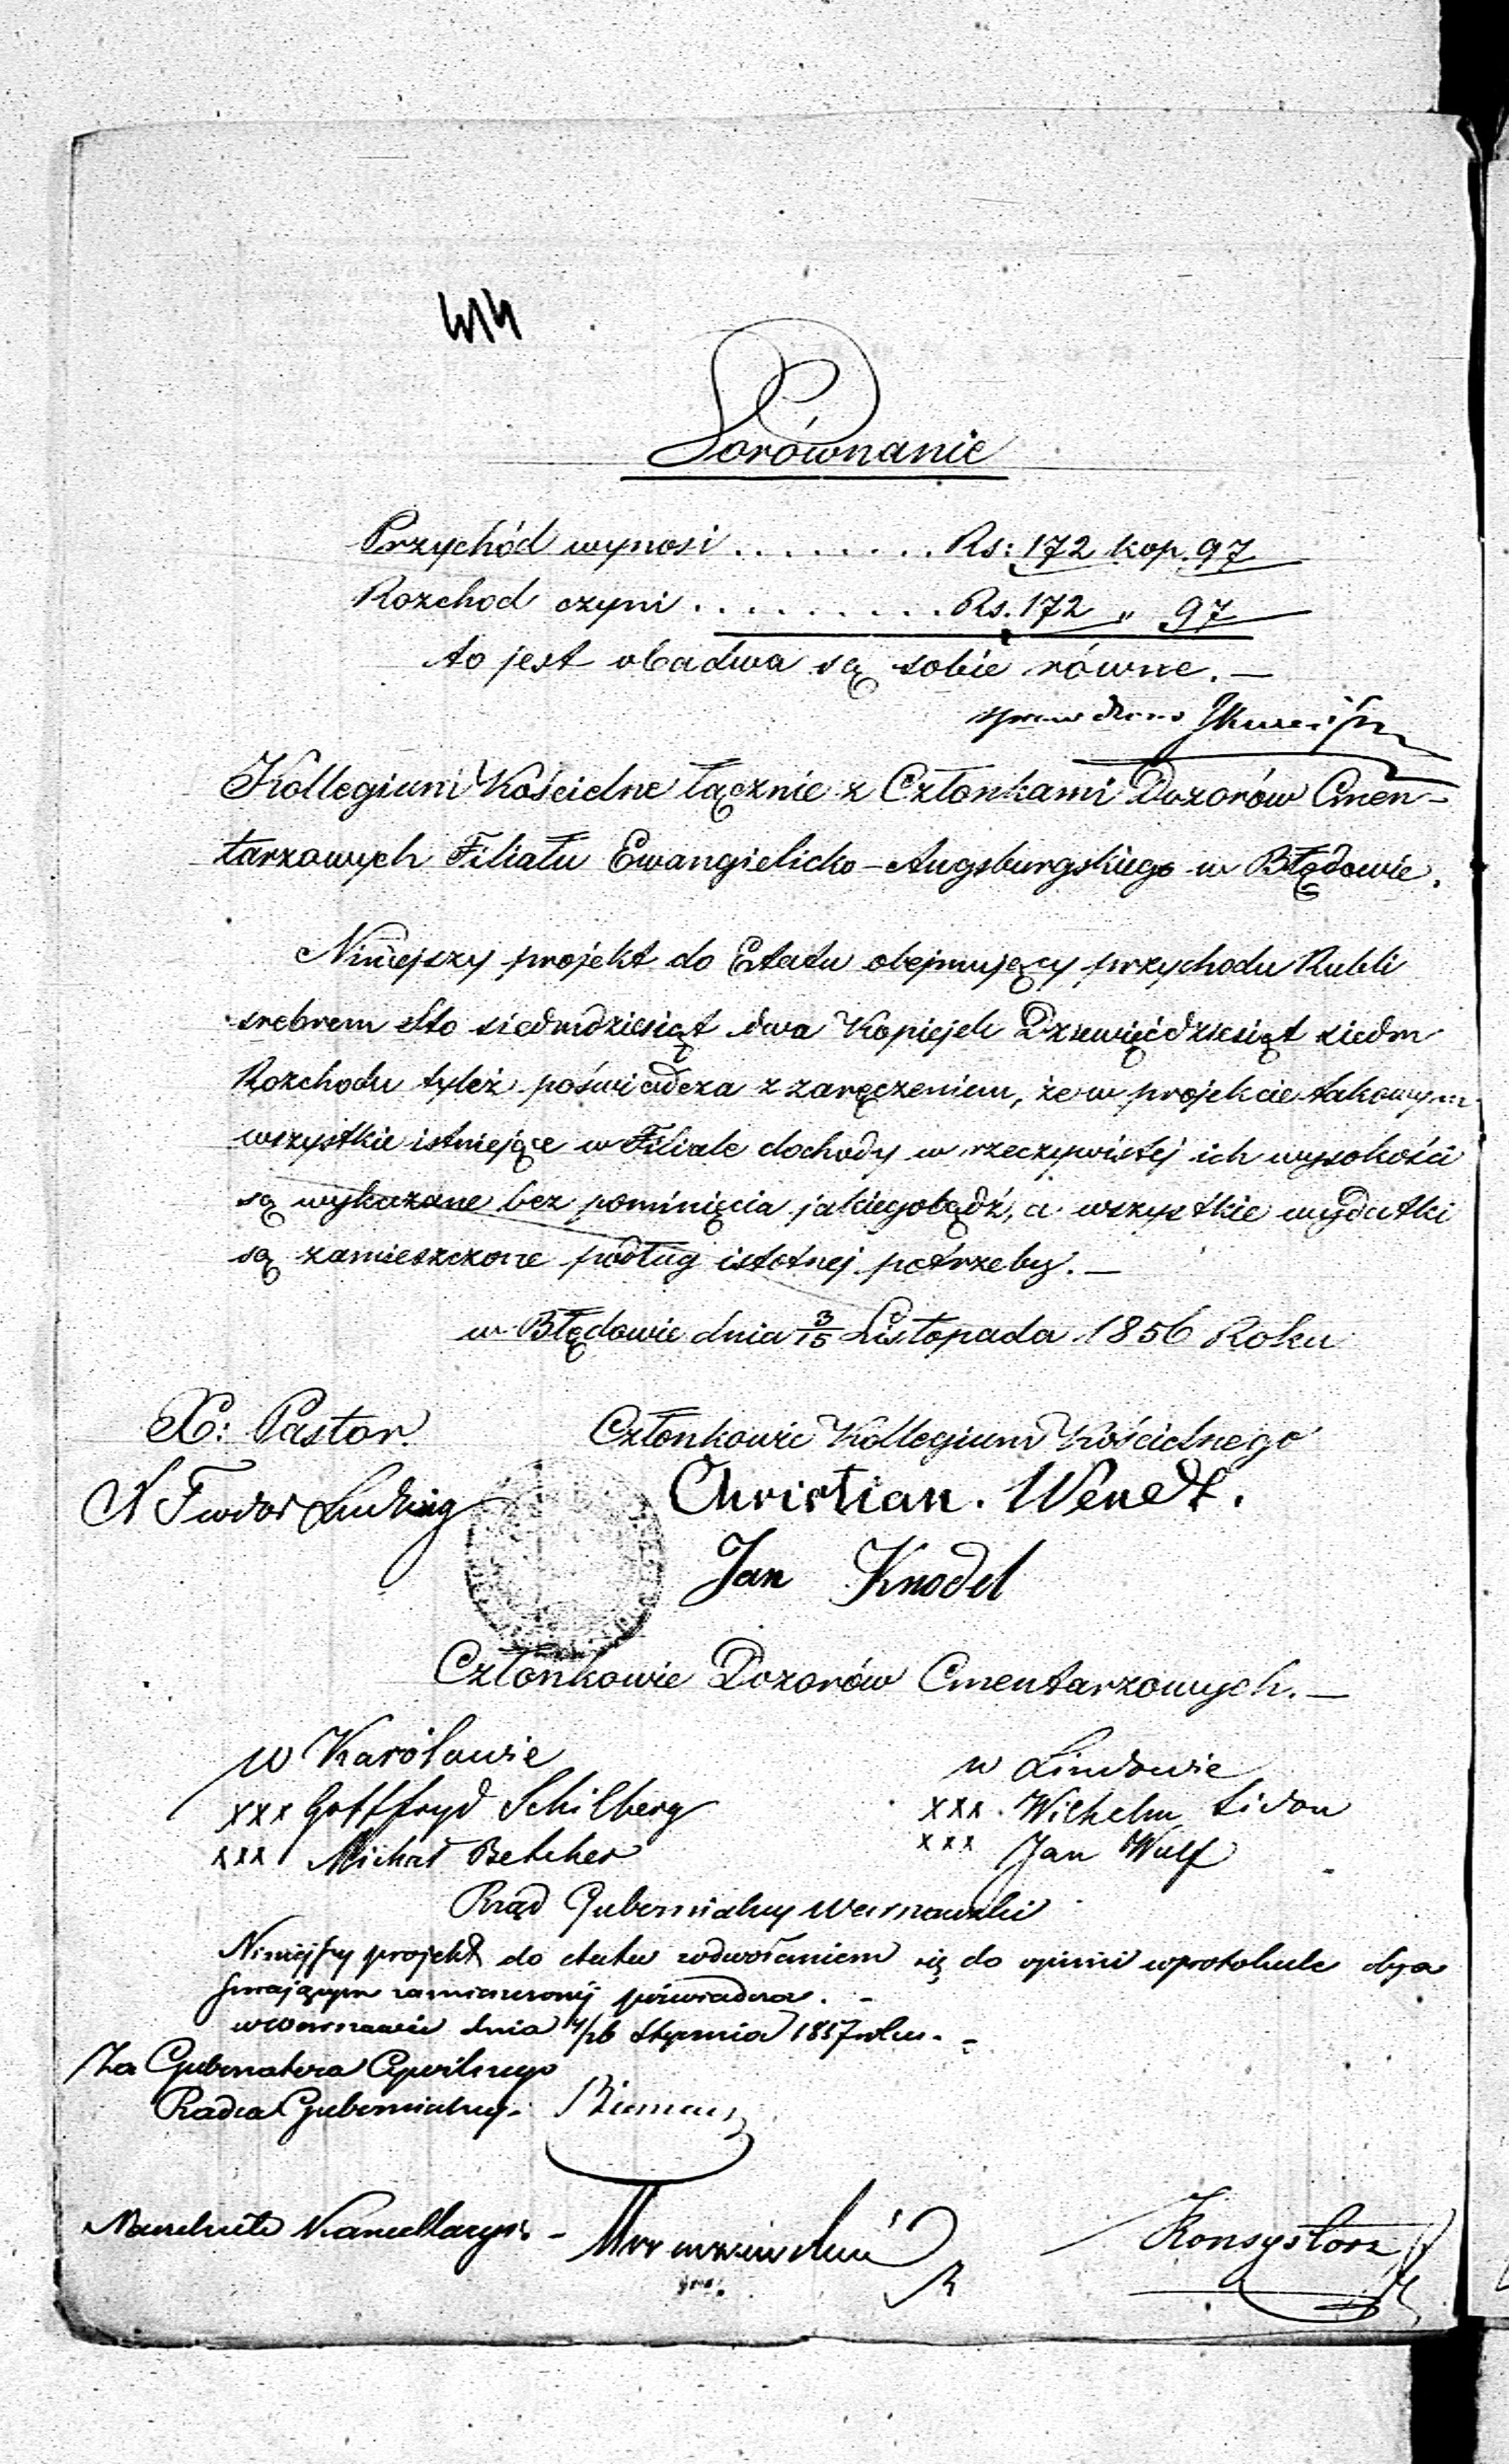 414
Porównanie
Przychód wynosi . . . . . . . . Rs: 172 kop. 97
Rozchod czyni . . . . . . . . . Rs. 172 " 97
to jest obadwa są sobie równe. —
sprawdzono
Kollegium Kościelne łącznie z Członkami Dozorów Cmen-
tarzowych Filiału Ewangielicko-Augsburgskiego w Błędowie.
Niniejszy projekt do Etatu obejmujący przychodu Rubli
srebrem Sto siedmdziesiąt dwa Kopiejek Dziewięćdziesiąt siedm
Rozchodu tyleż poświadcza z zaręczeniem, że w projekcie takowym
wszystkie istniejące w Filiale dochody w rzeczywistéj ich wysokości
są wykazane bez pominięcia jakiegobądź, a wszystkie wydatki
są zamieszczone podług istotnej potrzeby. —
w Błędowie dnia 3/15 Listopada 1856 Roku
X: Pastor. Członkowie Kollegium Kościelnego
Teodor Ludwig Christian. Wendt.
Jan Knodel
Członkowie Dozorów Cmentarzowych. —
w Karólowie w Lindowie
xxx Gottfryd Schilberg xxx. Wilhelm
xxx Michał Betcher xxx Jan Wulf
Rząd Gubernialny Warszawski
Niniejszy projekt do etatu z odwołaniem się do opinii w protokule obja
śniającym zamieszczonéj poświadcza. -
w Warszawie dnia Stycznia 1857 roku. -
Za Gubernatora Cywilnego
Radca Gubernialny.
Naczelnik Kancellaryi -
Konsystorz